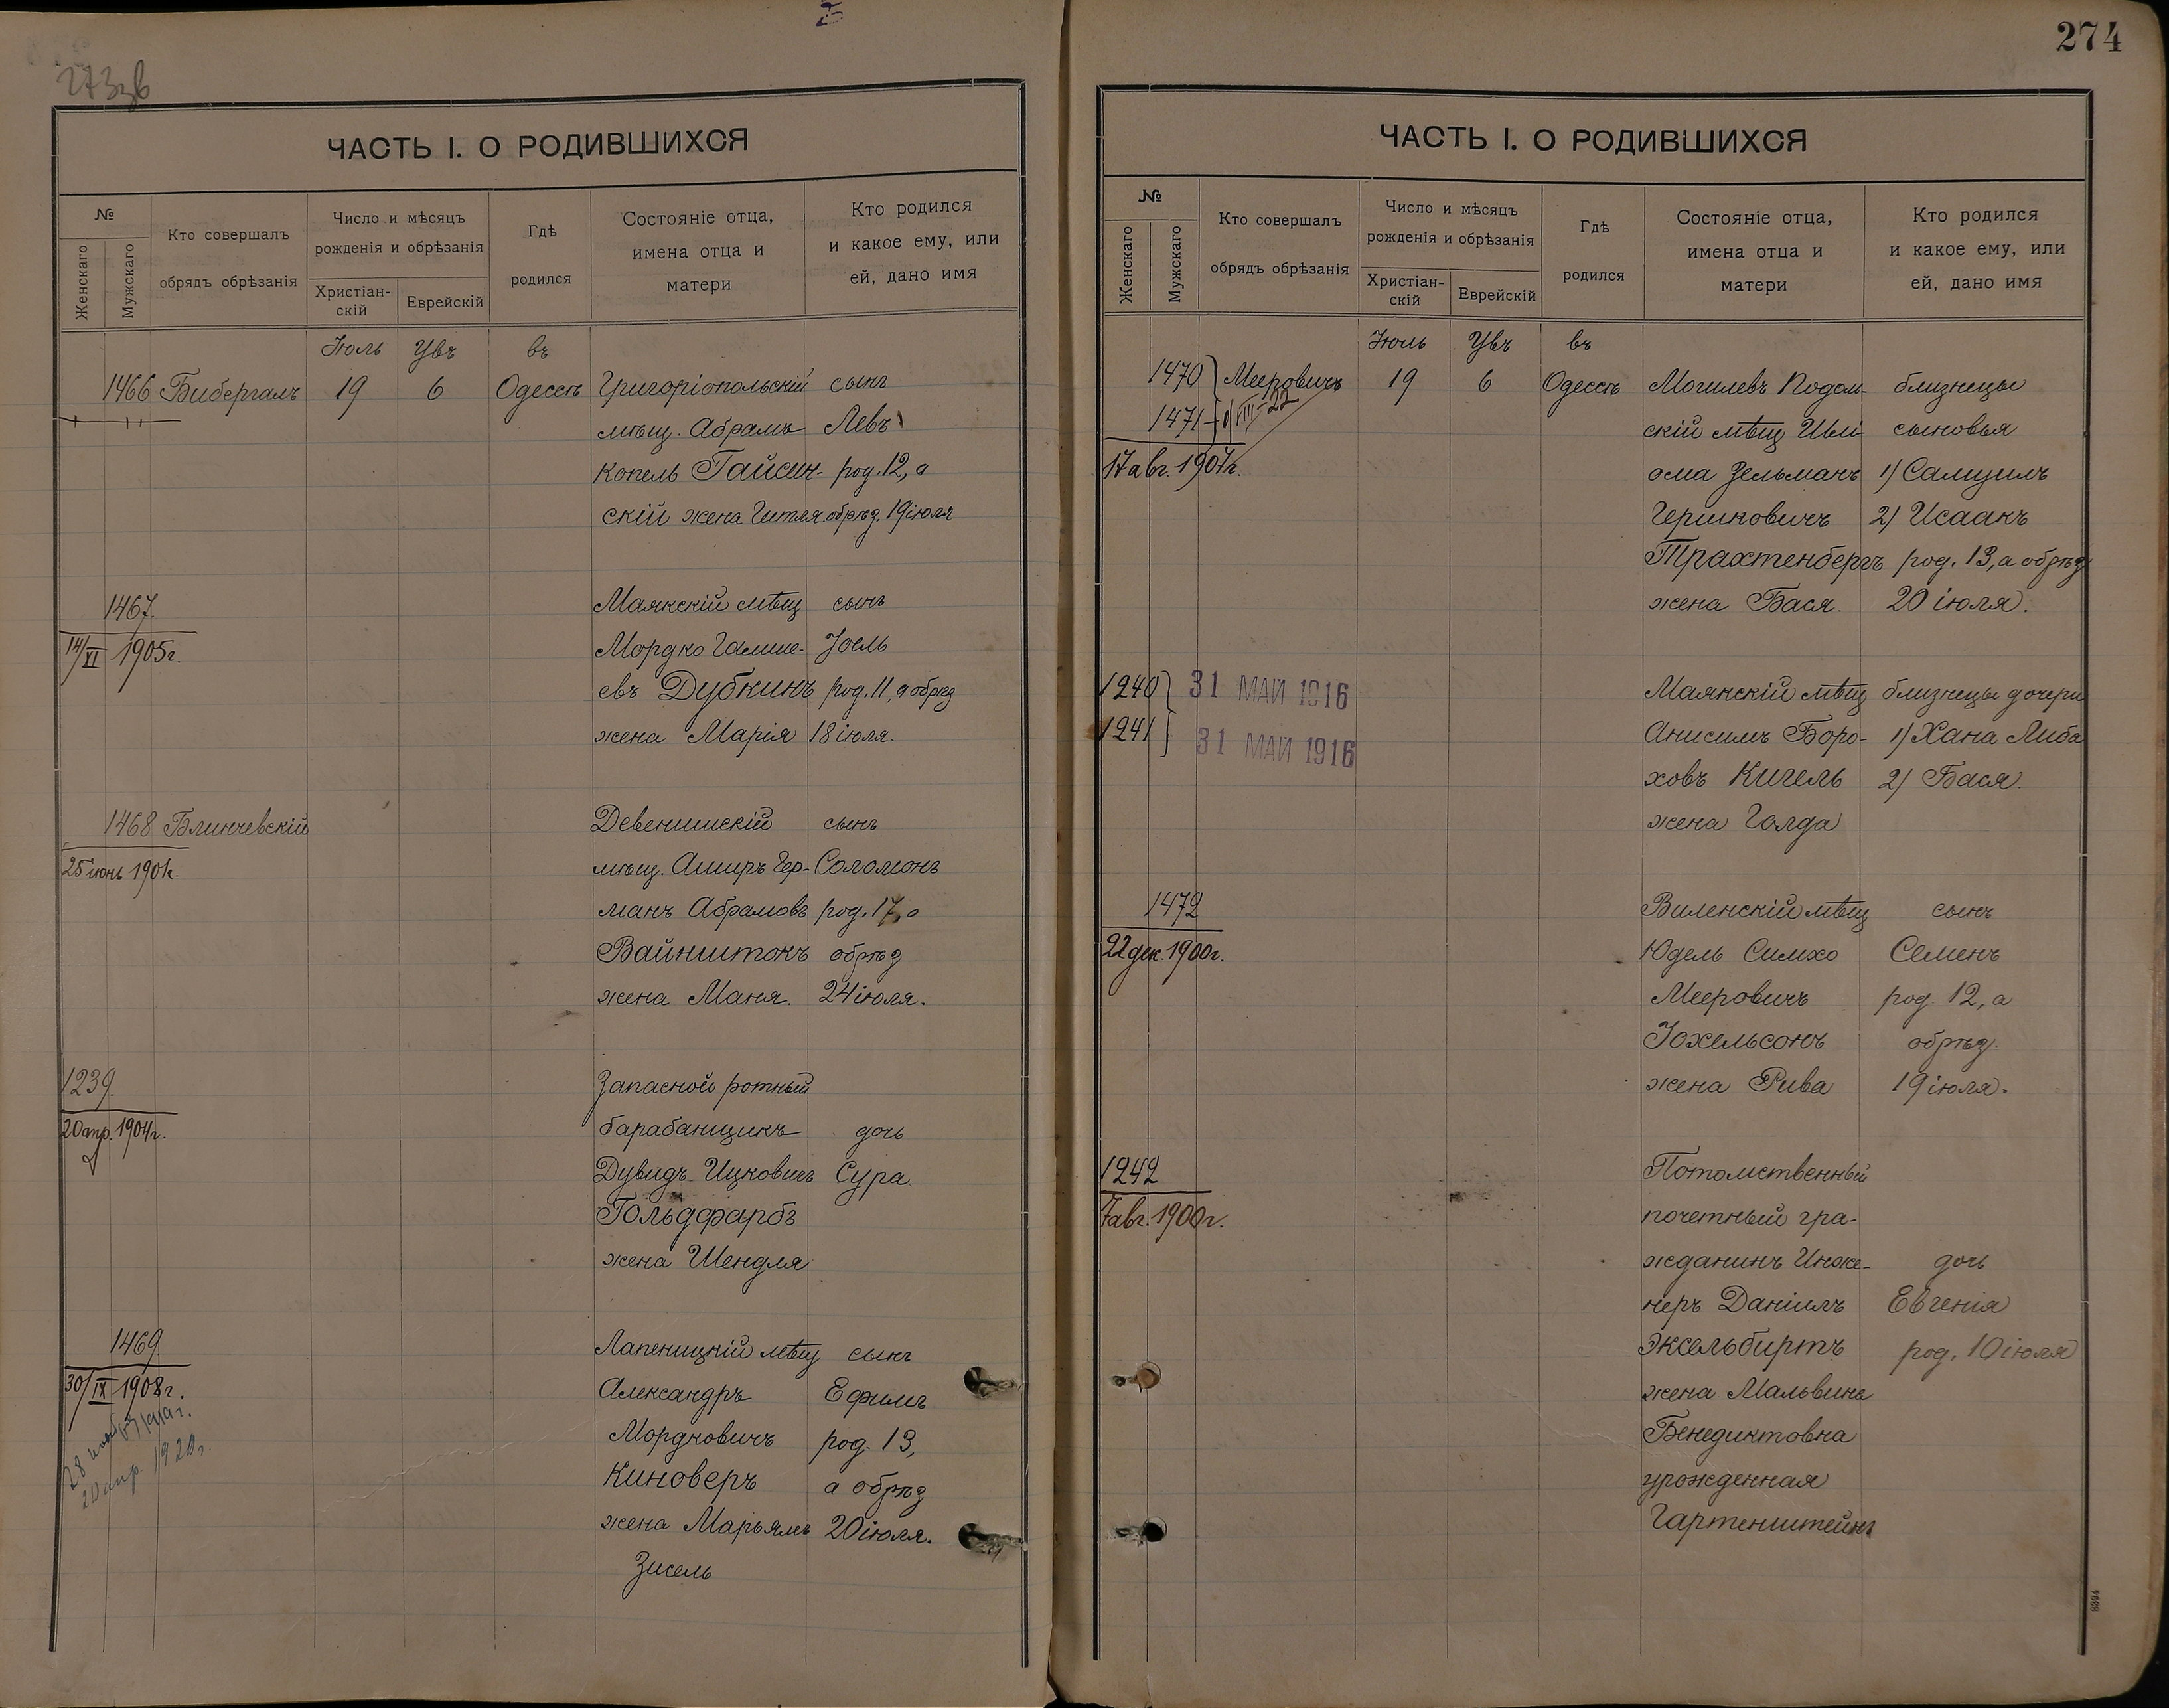 273зв
ЧАСТЬ I. О РОДИВШИХСЯ
№
Женскаго
Мужскаго
Кто совершалъ
обрядъ обрѣзанія
Число и мѣсяцъ
рожденія и обрѣзанія
Христіан-
скій
Еврейскій
Гдѣ
родился
Состояніе отца,
имена отца и
матери
Кто родился
и какое ему, или
ей, дано имя
ІюльУвъ въ
1466 Бибергалъ 19 6 Одессѣ Григоріопольскій сынъ
мѣщ. Абрамъ Левъ
Копель Гайсин- род. 12, а
скій жена Гитля обрѣз. 19 іюля
1467. Маякскій мѣщ сынъ
14/XI 1905г. Мордко Галше- Іоель
евъ Дубкинъ род. 11, а обрѣз
жена Марія 18 іюля.
1468 Блинчевскій Девенишскій сынъ
25 іюнь мѣщ. Аширъ Гер- Соломонъ
манъ Абрамовъ род. 17, а
Вайнштокъ обрѣз
жена Маня. 24 іюля.
1239. Запасной ротный
20 апр. 1904г. барабанщикъ дочь
Дувидъ Ицковичъ Сура
Гольдфарбъ
жена Шендля
1469 Лапеницкій мѣщ сынъ
30/IX 1908г. Александръ Ефимъ
28 Мордковичъ род. 13,
20 апр. 1920г. Киноверъ а обрѣз
жена Марьямъ 20 іюля.
Зисель
274
ЧАСТЬ I. О РОДИВШИХСЯ
№
Женскаго
Мужскаго
Кто совершалъ
обрядъ обрѣзанія
Число и мѣсяцъ
рожденія и обрѣзанія
Христіан-
скій
Еврейскій
Гдѣ
родился
Состояніе отца,
имена отца и
матери
Кто родился
и какое ему, или
ей, дано имя
Іюль Увъ въ
1470 Мееровичъ 19 6 Одессѣ Могилевъ Подоль- близнецы
1471 VIII-22 скій мѣщ Шлі- сыновья
17 авг. 1907г. ома Зельманъ 1) Самуилъ
Гершковичъ 2) Исаакъ
Трахтенбергъ род. 13, а обрѣз
жена Бася. 20 іюля.
1240 31 МАЙ 1916 Маякскій мѣщ близнецы дочери
1241 31 МАЙ 1916 Анисимъ Боро- 1) Хана Либа
ховъ Кигель 2) Бася.
жена Голда
1472 Виленскій мѣщ сынъ
22 дек. 1900г. Юдель Симхо Семенъ
Мееровичъ род. 12, а
Іохельсонъ обрѣз.
жена Рива 19 іюля.
1242 Потомственный
7 авг. 1900г. почетный гра-
жданинъ Инже- дочь
неръ Даніилъ Евгенія
Эксельбиртъ род. 10 іюля
жена Мальвина
Бенедиктовна
урожденная
Гартенштейнъ
8394